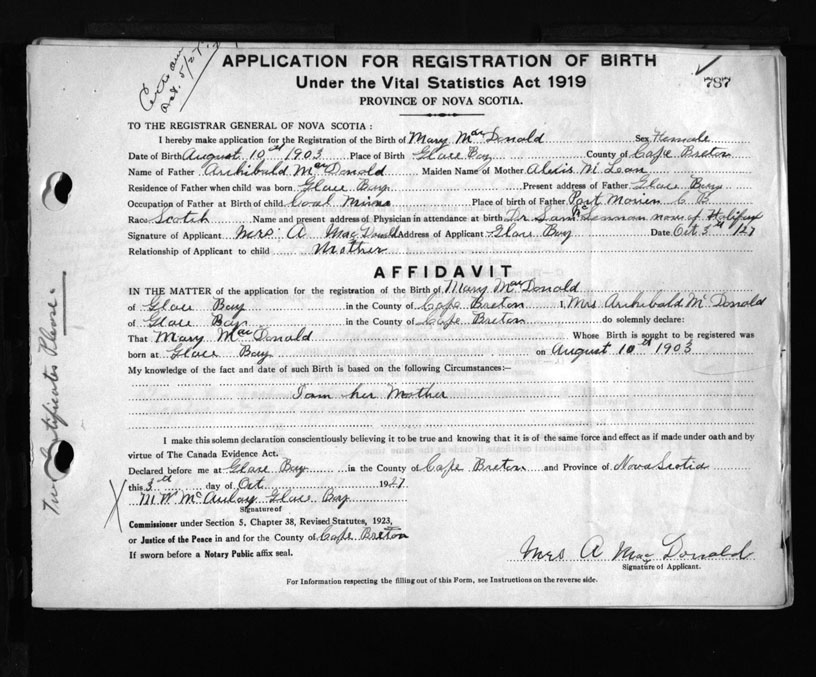 APPLICATION FOR REGISTRATION OF BIRTH
787
Under the Vital Statistics Act 1919
PROVINCE OF NOVA SCOTIA.
TO THE REGISTRAR GENERAL OF NOVA SCOTIA :
I hereby make application for the Registration of the Birth of Mary Mac Donald Sex Female
Date of Birth August 10th 1903 Place of Birth Glace Bay County of Cape Breton
Name of Father Archibald Mac Donald Maiden Name of Mother McLean
Residence of Father when child was born Glace Bay Present address of Father Glace Bay
Occupation of Father at Birth of child Coal Place of birth of Father Port Morien C B
Race Scotch Name and present address of Physician in attendance at birth Dr. now of Halifax
Signature of Applicant Mrs A MacDonald Address of Applicant Glace Bay Date Oct 3rd /27
Relationship of Applicant to child Mother
AFFIDAVIT
IN THE MATTER of the application for the registration of the Birth of Mary Mac Donald
of Glace Bay in the County of Cape Breton I, Mrs Archibald McDonald
of Glace Bay in the County of Cape Breton do solemnly declare:
That Mary MacDonald Whose Birth is sought to be registered was
born at Glace Bay on August 10th 1903
My knowledge of the fact and date of such Birth is based on the following Circumstances:—
I am her Mother
I make this solemn declaration conscientiously believing it to be true and knowing that it is of the same force and effect as if made under oath and by
virtue of The Canada Evidence Act.
Declared before me at Glace Bay in the County of Cape Breton and Province of Nova Scotia
this 3rd day of Oct 1927
M W McAulay Glace Bay
Signature of
Commissioner under Section 5, Chapter 38, Revised Statutes, 1923,
or Justice of the Peace in and for the County of Cape Breton
If sworn before a Notary Public affix seal.
Mrs A MacDonald
Signature of Applicant.
For Information respecting the filling out of this Form, see Instructions on the reverse side.
Certificates Please.